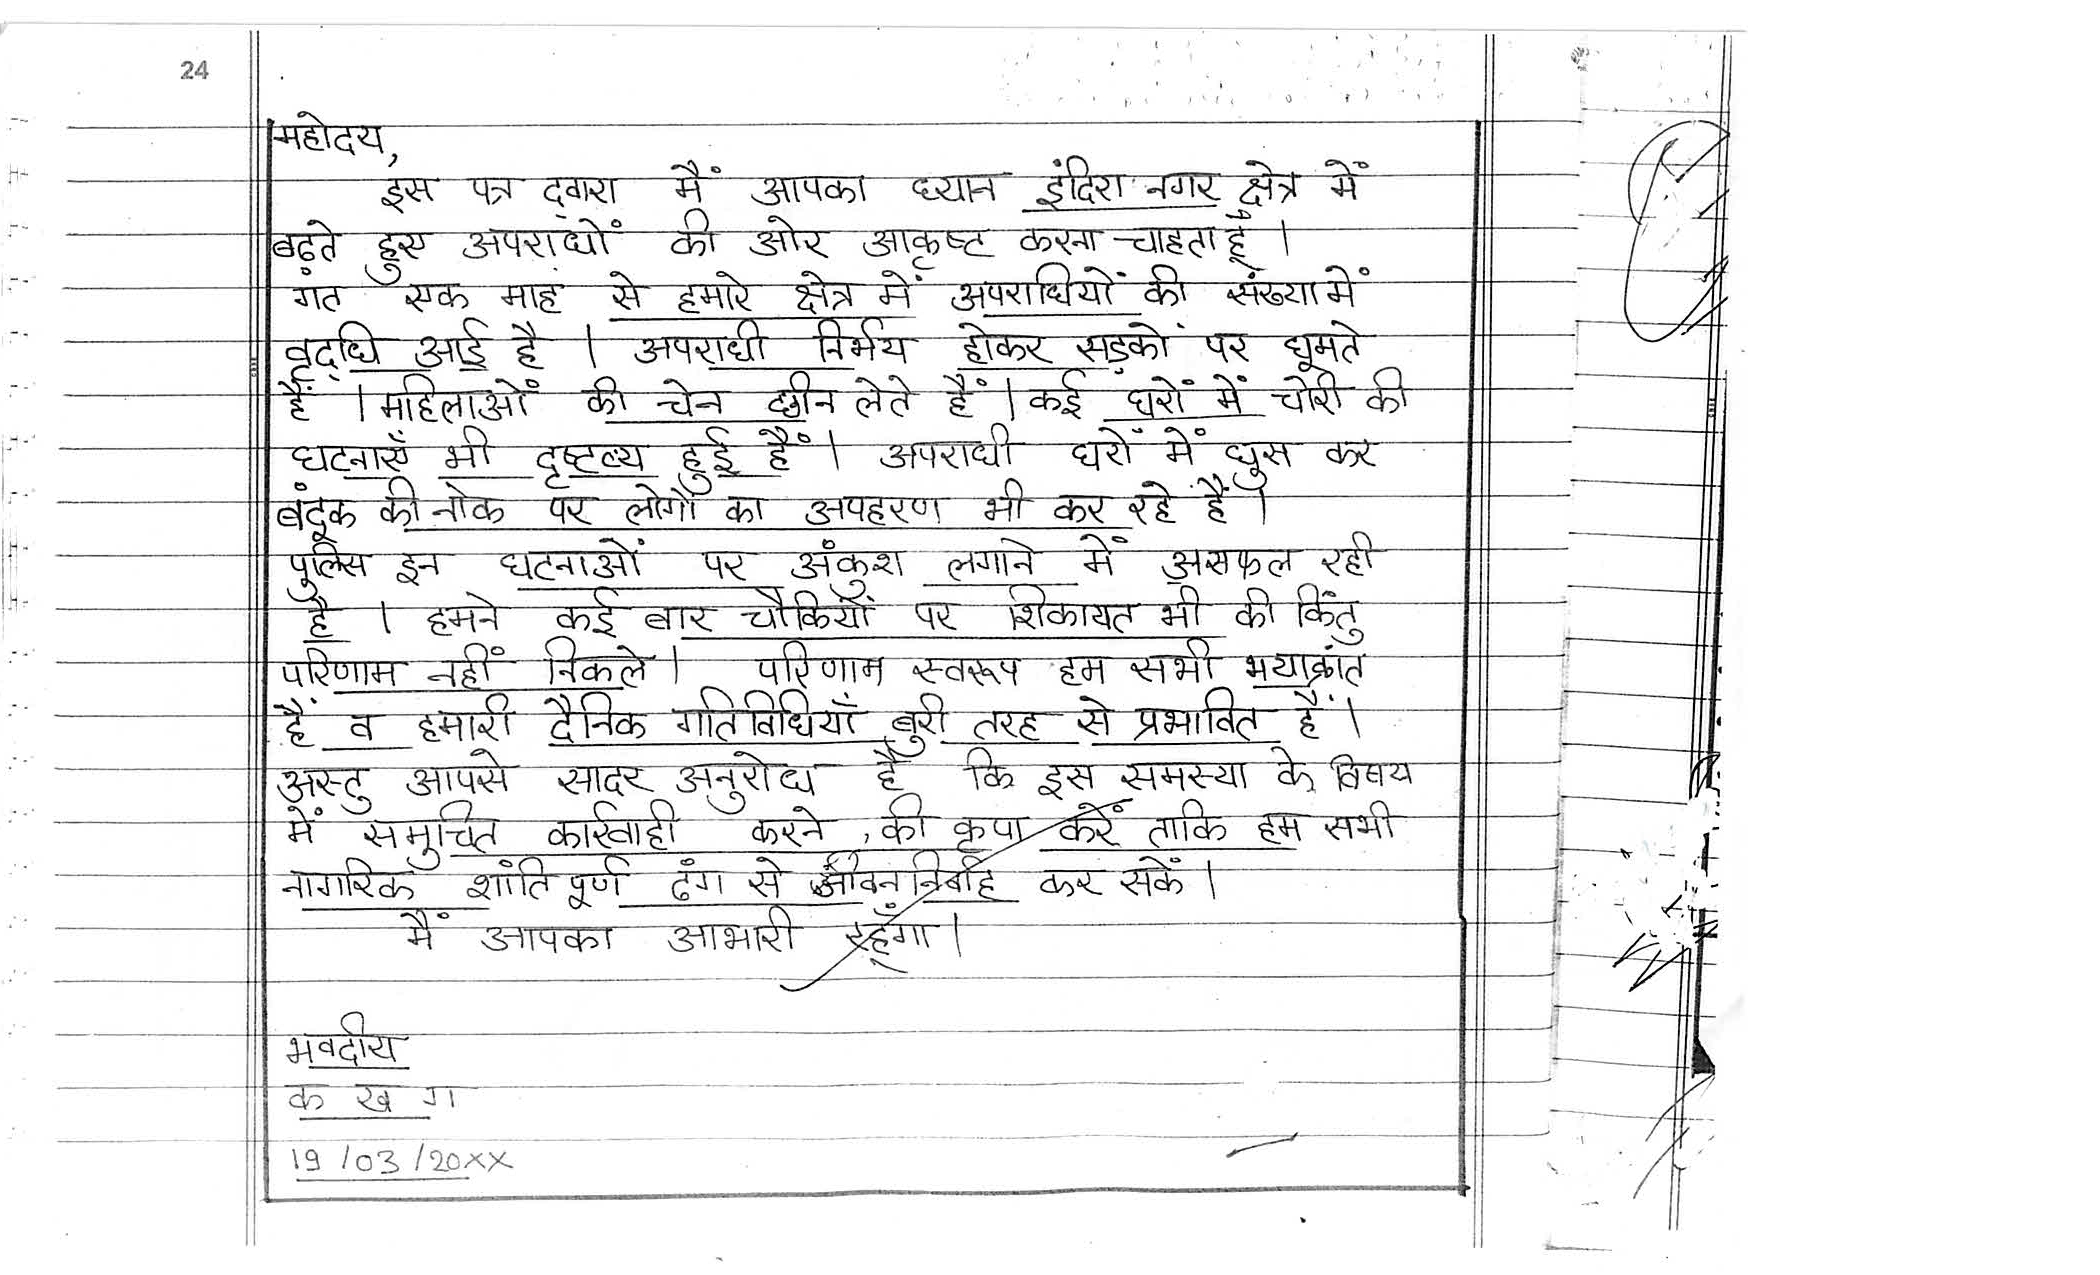 24
महोदय,
इस पत्र द्वारा मैं आपका ध्यान इंदिरा नगर क्षेत्र में
बढ़ते हुए अपराधों की ओर आकृष्ट करना चाहता हूँ।
गत एक माह से हमारे क्षेत्र में अपराधियों की संख्या में
वृद्धि आई है। अपराधी निर्भय होकर सड़कों पर घूमते
हैं। महिलाओं की चेन छीन लेते हैं। कई घरों में चोरी की
घटनाएँ भी दृष्टव्य हुई हैं। अपराधी घरों में घुस कर
बंदूक की नोक पर लोगों का अपहरण भी कर रहे हैं।
पुलिस इन घटनाओं पर अंकुश लगाने में असफल रही
है। हमने कई बार चौकियों पर शिकायत भी की किंतु
परिणाम नहीं निकले। परिणाम स्वरूप हम सभी भयाक्रांत
हैं व हमारी दैनिक गतिविधियाँ बुरी तरह से प्रभावित हैं।
अस्तु आपसे सादर अनुरोध है कि इस समस्या के विषय
में समुचित कार्रवाही करने की कृपा करें ताकि हम सभी
नागरिक शांति पूर्ण ढंग से जीवन निर्वाह कर सकें।
मैं आपका आभारी रहूँगा।
भवदीय
क ख ग
19/03/20XX